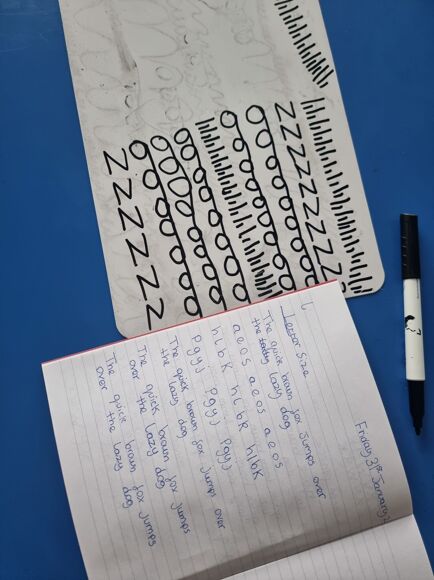 Friday 31st January
L
Letter Size
The quick brown fox jumps over
the lazy dog
aeos aeos aeos
hlbk hlbk hlbk
pgyj pgyj pgyj
The quick brown fox jumps over
the lazy dog
The quick brown fox jumps
over the lazy dog
The quick brown fox jumps
over the lazy dog